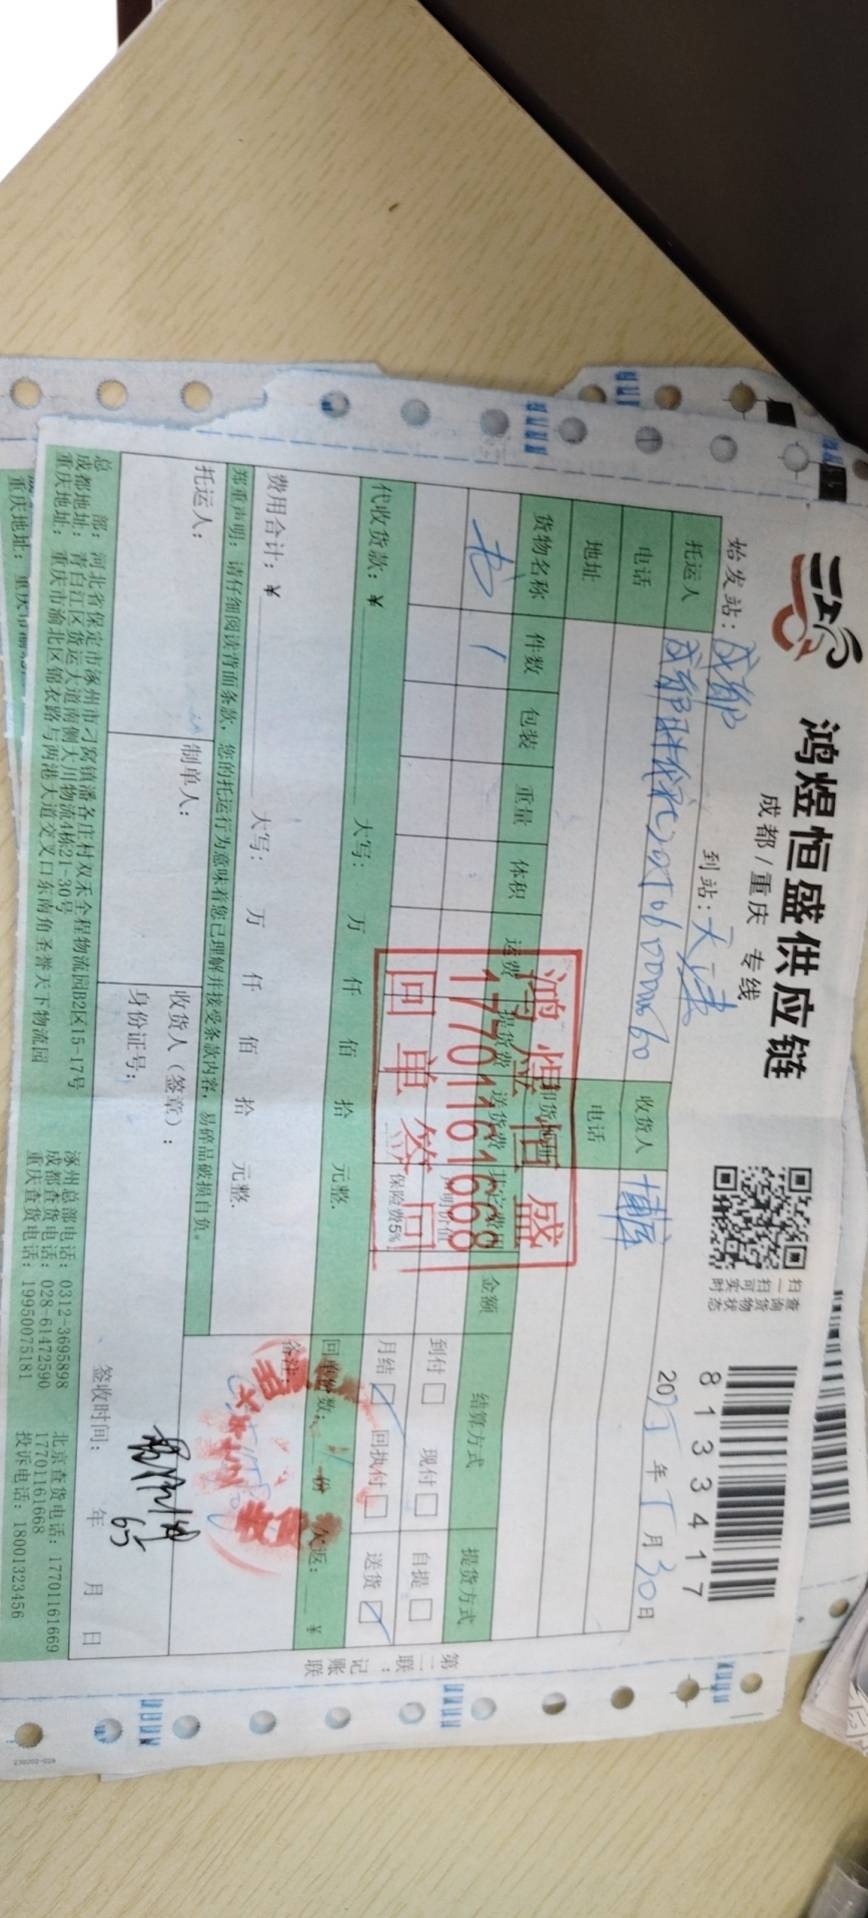 鸿煜恒盛供应链
成都/重庆 专线
扫一扫可实时
查询货物状态
8133417
始发站：成都 到站：天津 2025年5月30日
托运人 收货人 博库
电话 电话
地址 卸货地址
货物名称 件数 包装 重量 体积 运费 提货费 送货费 其它费用 金额 结算方式 提货方式
书 1
声明价值 保险费5%
到付 现付 自提
月结 回执付 送货
代收货款：¥ 大写： 万 仟 佰 拾 元整.
回单份数：1份 欠返： ¥
备注：
费用合计：¥ 大写： 万 仟 佰 拾 元整.
郑重声明：请仔细阅读背面条款，您的托运行为意味着您已理解并接受条款内容，易碎品破损自负。
托运人： 制单人： 收货人（签章）：
身份证号： 签收时间： 年 月 日
6.5
鸿煜恒盛
17701161668
回单签回
总 部：河北省保定市涿州市刁窝镇潘各庄村双禾全程物流园B2区15-17号
成都地址：青白江区货运大道南侧大川物流4栋21-30号
重庆地址：重庆市渝北区锦衣路与两港大道交叉口东南角圣誉天下物流园
涿州总部电话：0312-3695898
成都查货电话：028-61472590
重庆查货电话：19950075181
北京查货电话：17701161669
17701161668
投诉电话：18001323456
第二联：记账联
重庆地址：